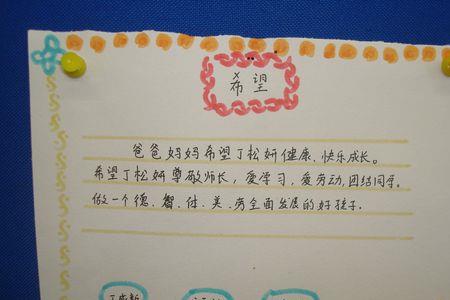 希望
爸爸妈妈希望丁松妍健康、快乐成长。
希望丁松妍尊敬师长，爱学习，爱劳动，团结同学。
做一个德、智、体、美、劳全面发展的好孩子.